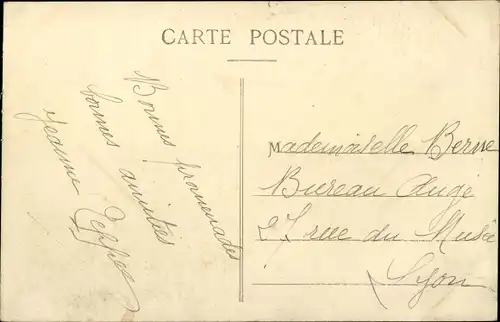 CARTE POSTALE
Bonnes promenades
bonnes amitiés
Jeanne Zeppee
Mademoiselle Berne
Bureau Augé
27 rue du Musée
Lyon